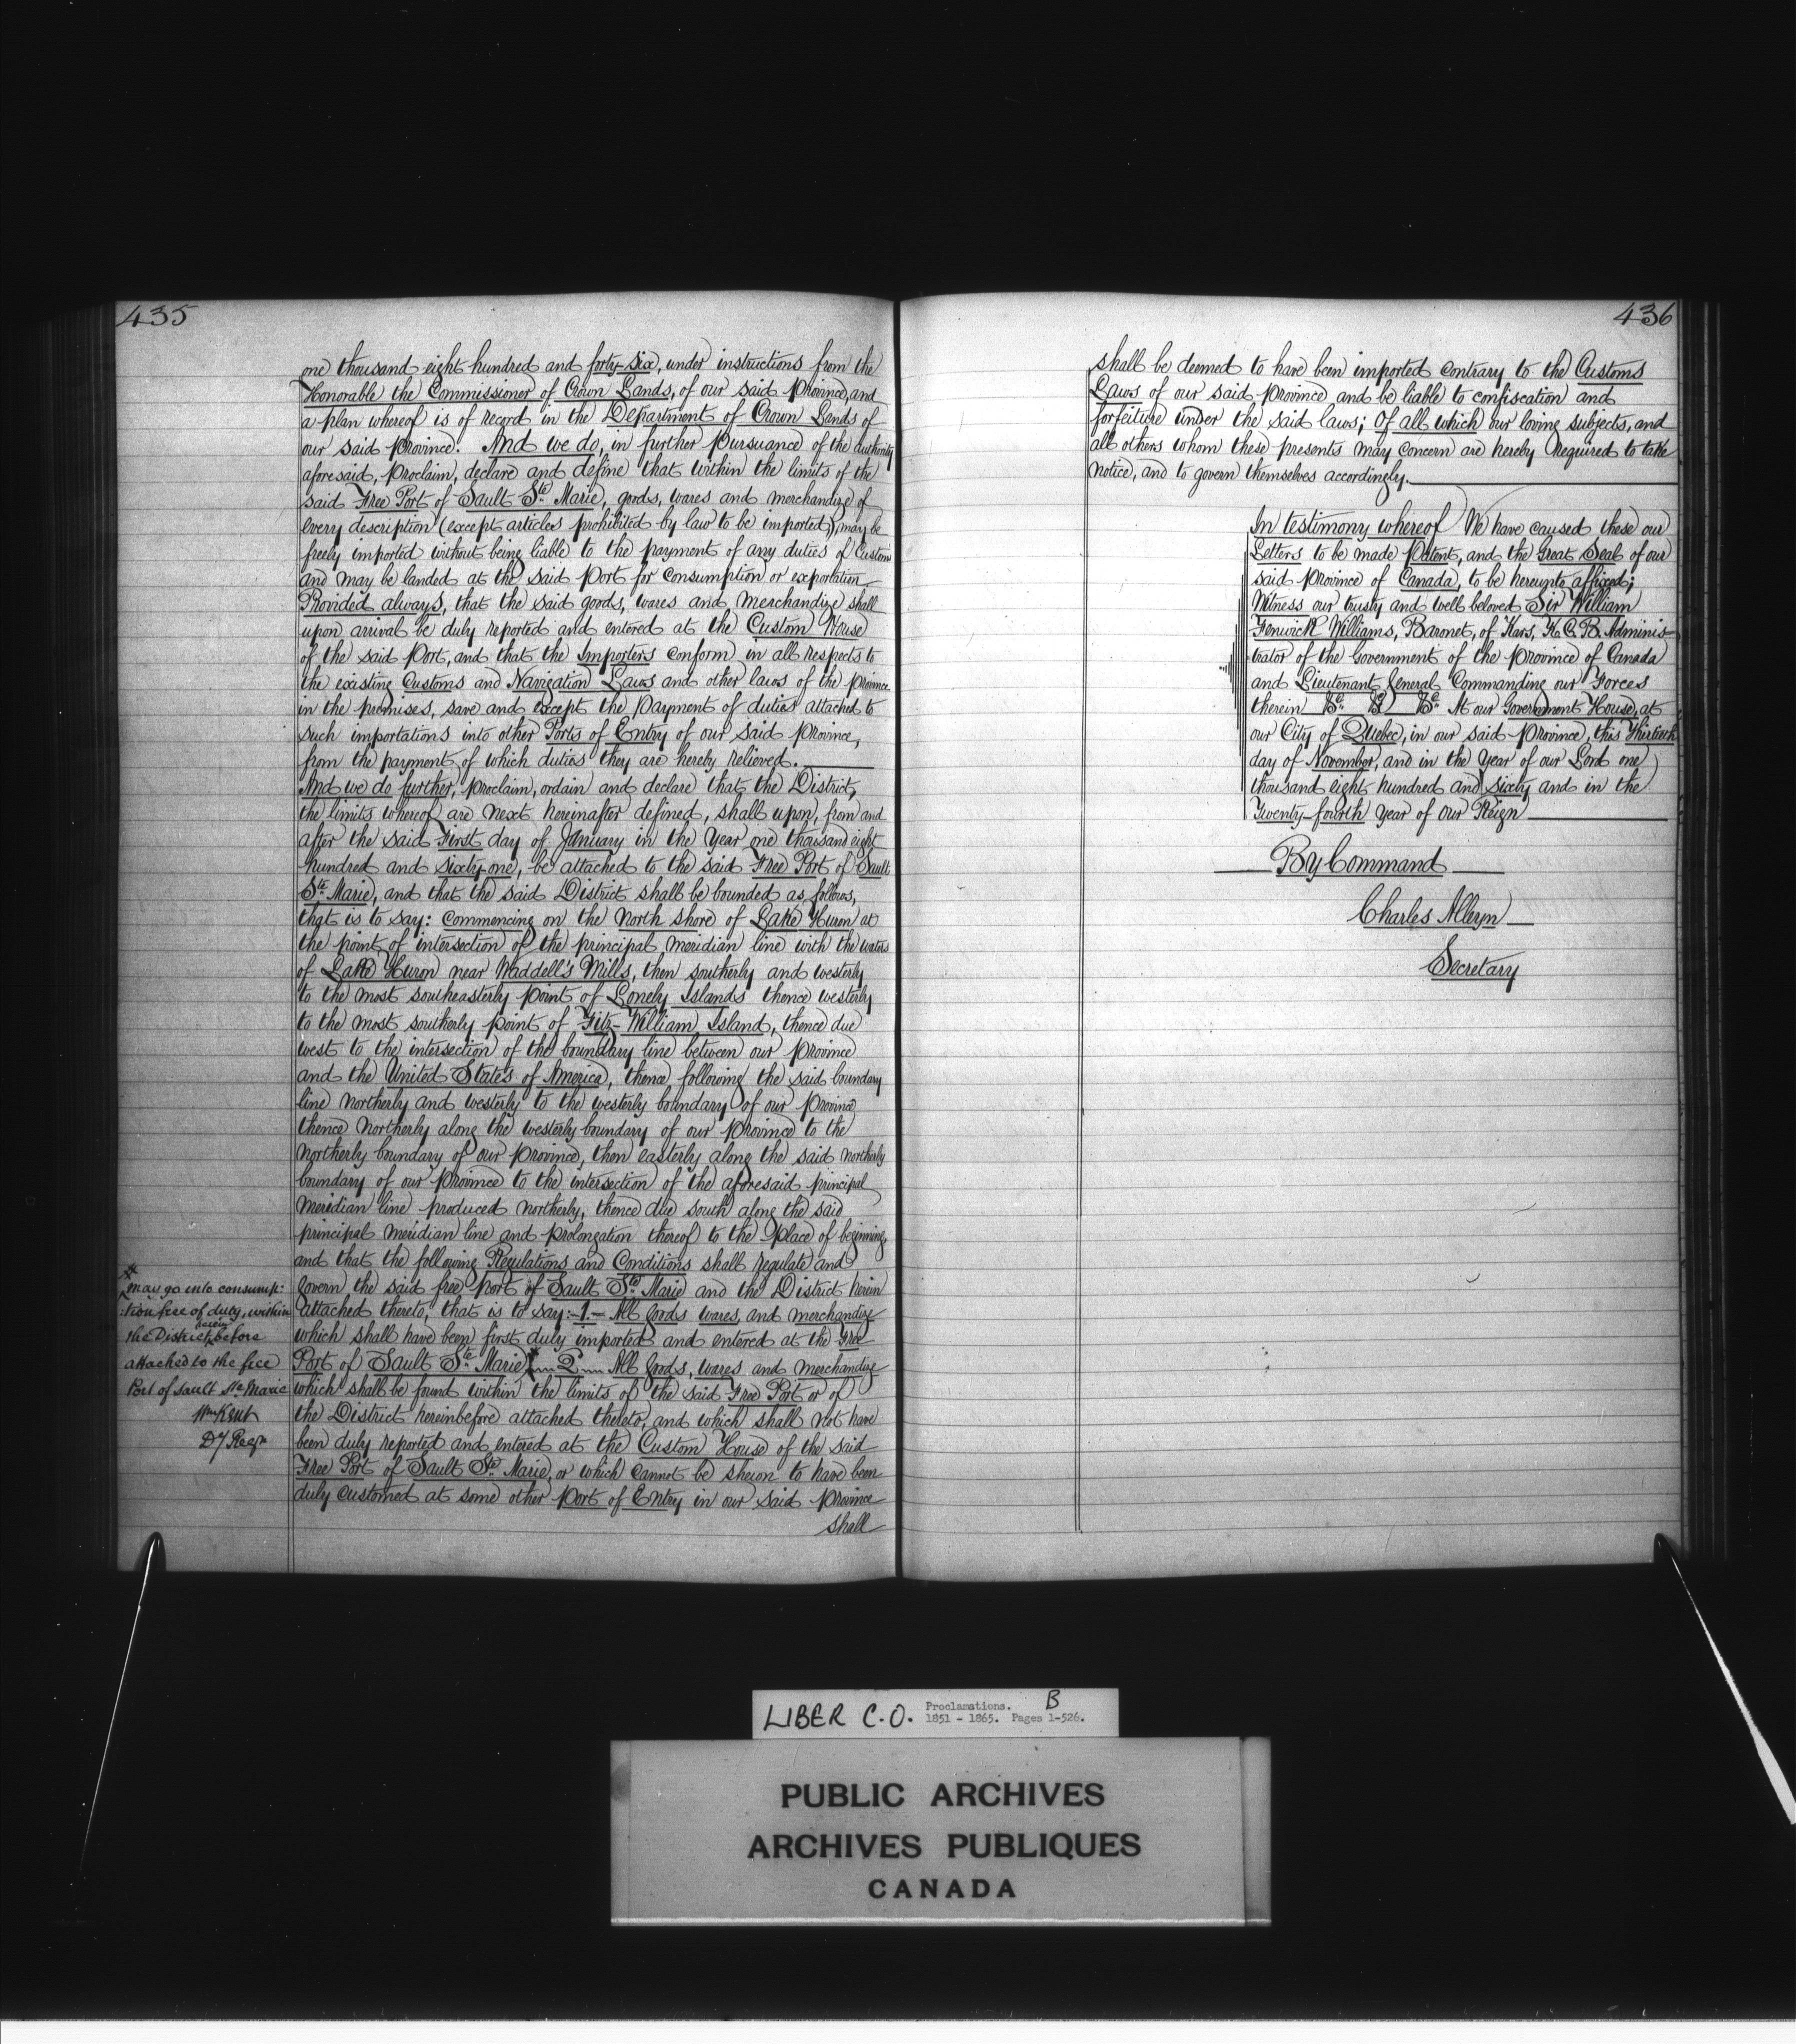 435
one thousand eight hundred and forty-six, under instructions from the
Honorable the Commissioner of Crown Lands, of our said Province, and
a plan whereof is of record in the Department of Crown Lands of
our said Province. And we do, in further pursuance of the authority
aforesaid, proclaim, declare and define that within the limits of the
said Free Port of Sault Ste. Marie, goods, wares and merchandize of
every description (except articles prohibited by law to be imported), may be
freely imported without being liable to the payment of any duties of Customs
and may be landed at the said port for consumption or exportation
Provided always, that the said goods, wares and Merchandize shall
upon arrival be duly reported and entered at the Custom House
of the said Port, and that the Importers conform in all respects to
the existing Customs and Navigation Laws and other laws of the province
in the premises, save and except the payment of duties attached to
such importations into other Ports of Entry of our said province,
from the payment of which duties they are hereby relieved.
And we do further, proclaim, ordain and declare that the District,
the limits whereof are next hereinafter defined, shall upon, from and
after the said First day of January in the Year one thousand eight
hundred and sixty-one, be attached to the said Free Port of Sault
Ste. Marie, and that the said District shall be bounded as follows,
that is to say: Commencing on the north shore of Lake Huron at
the point of intersection of the principal meridian line with the waters
of Lake Huron near Waddell's Mills, then southerly and westerly
to the most southeasterly point of Lonely Islands thence westerly
to the most southerly point of Fitz-William Island, thence due
west to the intersection of the boundary line between our province
and the United States of America, thence following the said boundary
line northerly and westerly to the westerly boundary of our province
thence northerly along the westerly boundary of our province to the
northerly boundary of our province, then easterly along the said northerly
boundary of our province to the intersection of the aforesaid principal
meridian line produced northerly, thence due south along the said
principal meridian line and prolongation thereof to the place of beginning,
and that the following Regulations and Conditions shall regulate and
govern the said free port of Sault Ste. Marie and the District herein
attached thereto, that is to say:-1.- All goods wares, and merchandize
which shall have been first duly imported and entered at the Free
Port of Sault Ste. Marie * 2 All goods, wares and merchandize
which shall be found within the limits of the said Free Port or of
the District hereinbefore attached thereto, and which shall not have
been duly reported and entered at the Custom House of the said
Free Port of Sault Ste. Marie, or which cannot be shewn to have been
duly customed at some other port of Entry in our said province
shall
* may go into consump:
:tion free of duty, within
the District herein before
attached to the free
Port of Sault Ste. Marie
Wm Kent
Dy Regr
436
shall be deemed to have been imported contrary to the Customs
Laws of our said province and be liable to confiscation and
forfeiture under the said laws; Of all which our loving subjects, and
all others whom these presents may concern are hereby required to take
notice, and to govern themselves accordingly.
In testimony whereof We have caused these our
Letters to be made Patent, and the Great Seal of our
said province of Canada, to be hereunto affixed;
Witness our trusty and well beloved Sir William
Fenwick Williams, Baronet, of Kars, K.C.B. Adminis-
trator of the Government of the province of Canada
and Lieutenant General Commanding our Forces
therein &c. &c. &c. At our Government House, at
our City of Quebec, in our said province, this Thirtieth
day of November, and in the Year of our Lord one
thousand eight hundred and sixty and in the
Twenty-fourth Year of Our Reign
By Command
Charles Alleyn
Secretary
LIBER C.O. Proclamations. B
1851 - 1865. Pages 1-526.
PUBLIC ARCHIVES
ARCHIVES PUBLIQUES
CANADA